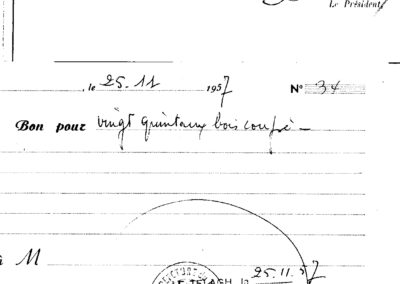 Le Président
, le 25.11 1957 N° 34
Bon pour vingt quintaux bois coupé
à M
25.11.57